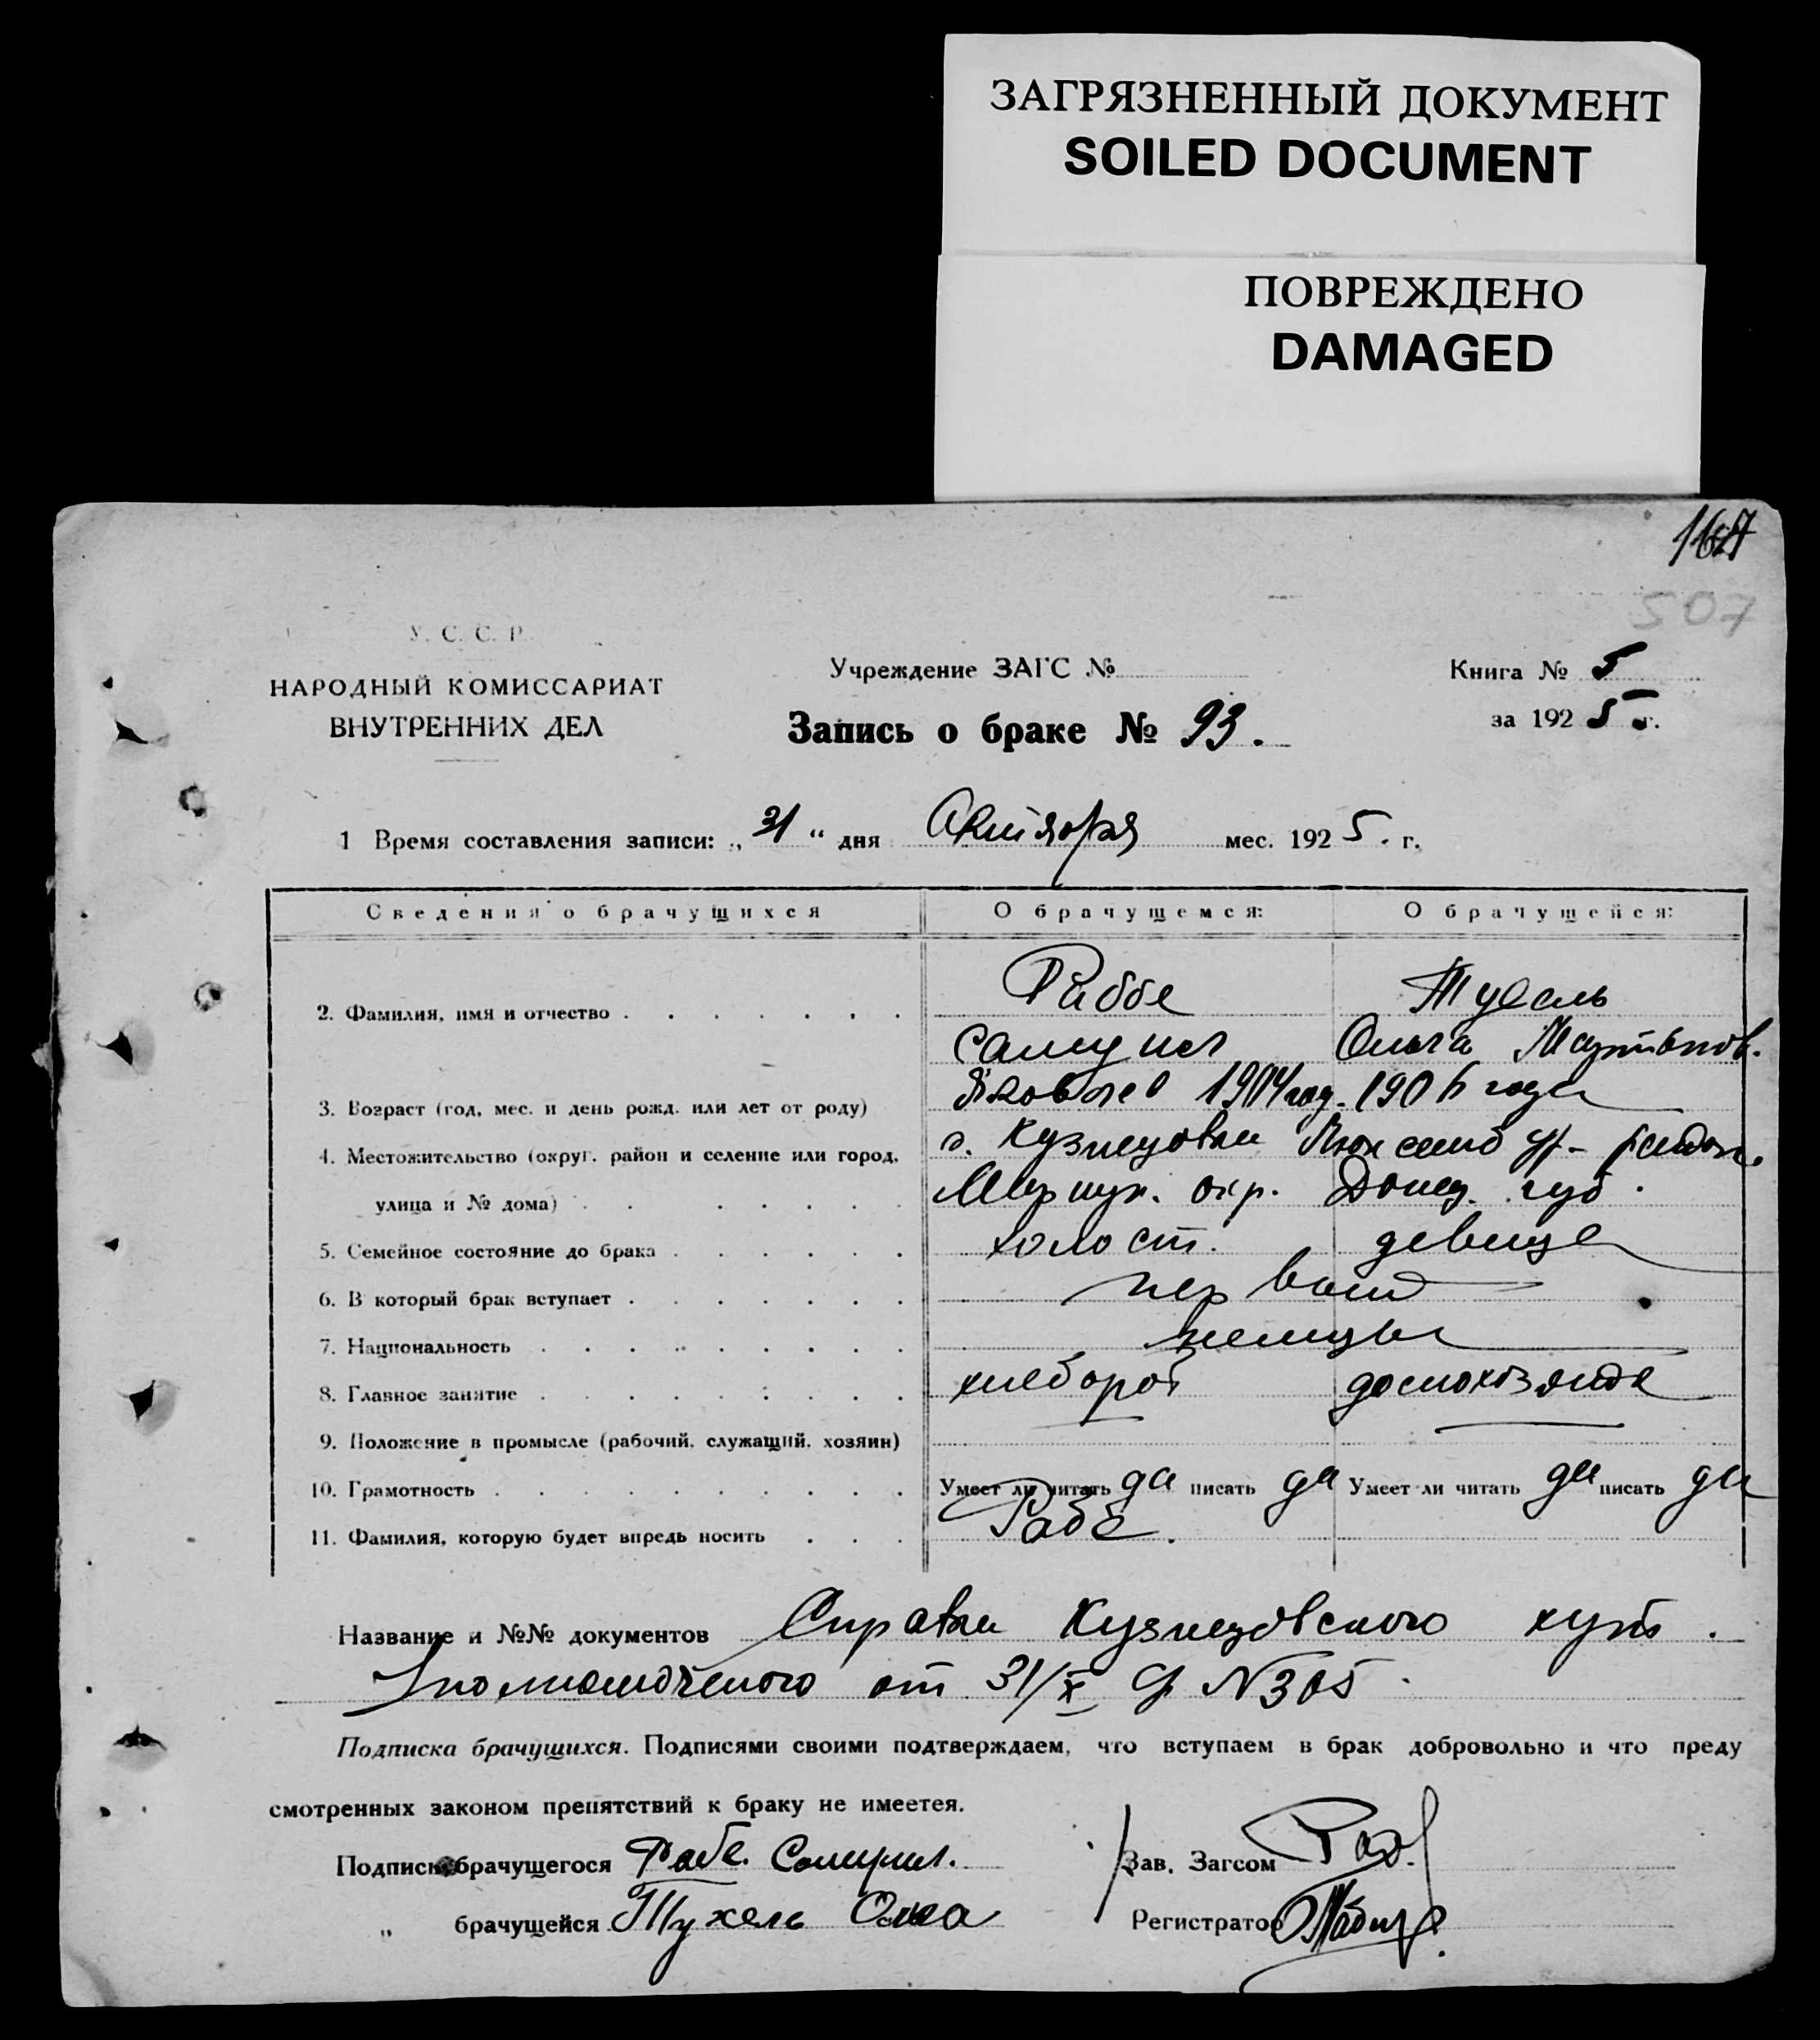 ЗАГРЯЗНЕННЫЙ ДОКУМЕНТ
SOILED DOCUMENT
ПОВРЕЖДЕНО
DAMAGED
507
У. С. С. Р.
НАРОДНЫЙ КОМИССАРИАТ
ВНУТРЕННИХ ДЕЛ
Учреждение ЗАГС №
Книга № 5
за 1925 г.
Запись о браке № 93.
1 Время составления записи: „31“ дня Октября мес. 1925. г.
Сведения о брачущихся О брачущемся: О брачущейся:
2. Фамилия, имя и отчество Раббе
Самуил Ольга Мартынов.
3. Возраст (год, мес. и день рожд. или лет от роду) Яковлев 1904 год. 1906 года
4. Местожительство (округ, район и селение или город, Кузнецовка район.
улица и № дома) Мариуп. окр. Донец. губ.
5. Семейное состояние до брака холост. девица
6. В который брак вступает первый
7. Национальность немцы
8. Главное занятие хлебороб домохозяйка
9. Положение в промысле (рабочий, служащий, хозяин)
10. Грамотность Умеет ли читать да писать да Умеет ли читать да писать да
11. Фамилия, которую будет впредь носить Рабе.
Название и №№ документов Справка Кузнецовского
от 31/X № 305
Подписка брачущихся. Подписями своими подтверждаем, что вступаем в брак добровольно и что преду
смотренных законом препятствий к браку не имеетея.
Подписи брачущегося Рабе. Самуил.
„ брачущейся Тухель Олга
Зав. Загсом
Регистратор